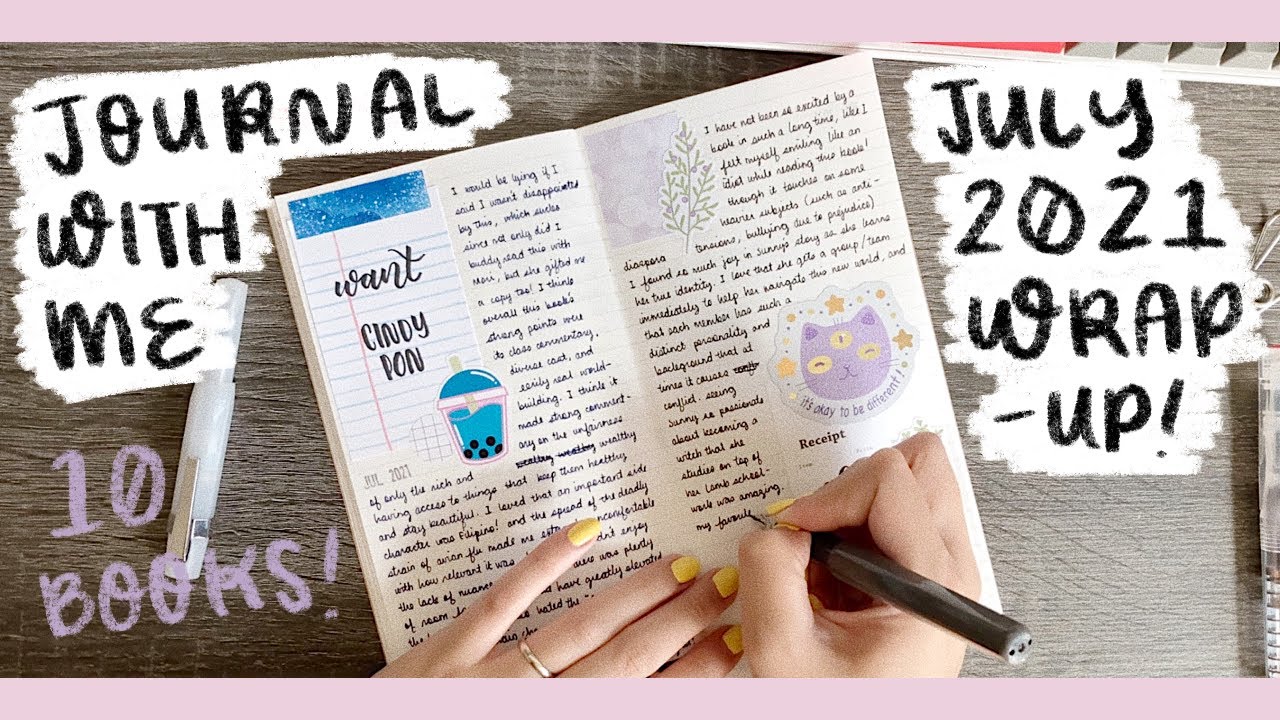 JOURNAL
WITH
ME
10
BOOKS!
JULY
2021
WRAP
-UP!
want
CINDY
PON
JUL 2021
I would be lying if I
said I wasn't disappointed
by this, which sucks
since not only did I
buddy read this with
Mori, but she gifted me
a copy too! I think
overall this book's
strong points were
its class commentary,
diverse cast, and
easily real world-
building. I think it
made strong comment-
ary on the unfairness
wealthy
of only the rich and
having access to things that keep them healthy
and stay beautiful. I loved that an important side
character was Filipino! and the spread of the deadly
strain of avian flu made me uncomfortable
with how relevant it was enjoy
the lack of was plenty
room have greatly elevated
hated the
I have not been so excited by a
book in such a long time, like I
felt myself smiling like an
idiot while reading this book!
though it touches on some
heavier subjects (such as anti-
blackness, bullying due to prejudice)
diaspora
I found so much joy in Sunny's story as she learns
her true identity. I love that she gets a group/team
immediately to help her navigate this new world, and
that each member has such a
distinct personality and
background that at
times it causes
conflict. seeing
Sunny so passionate
about becoming a
witch that she
studies on top of
her Lamb school-
work was amazing.
my favorite
it's okay to be different!
Receipt